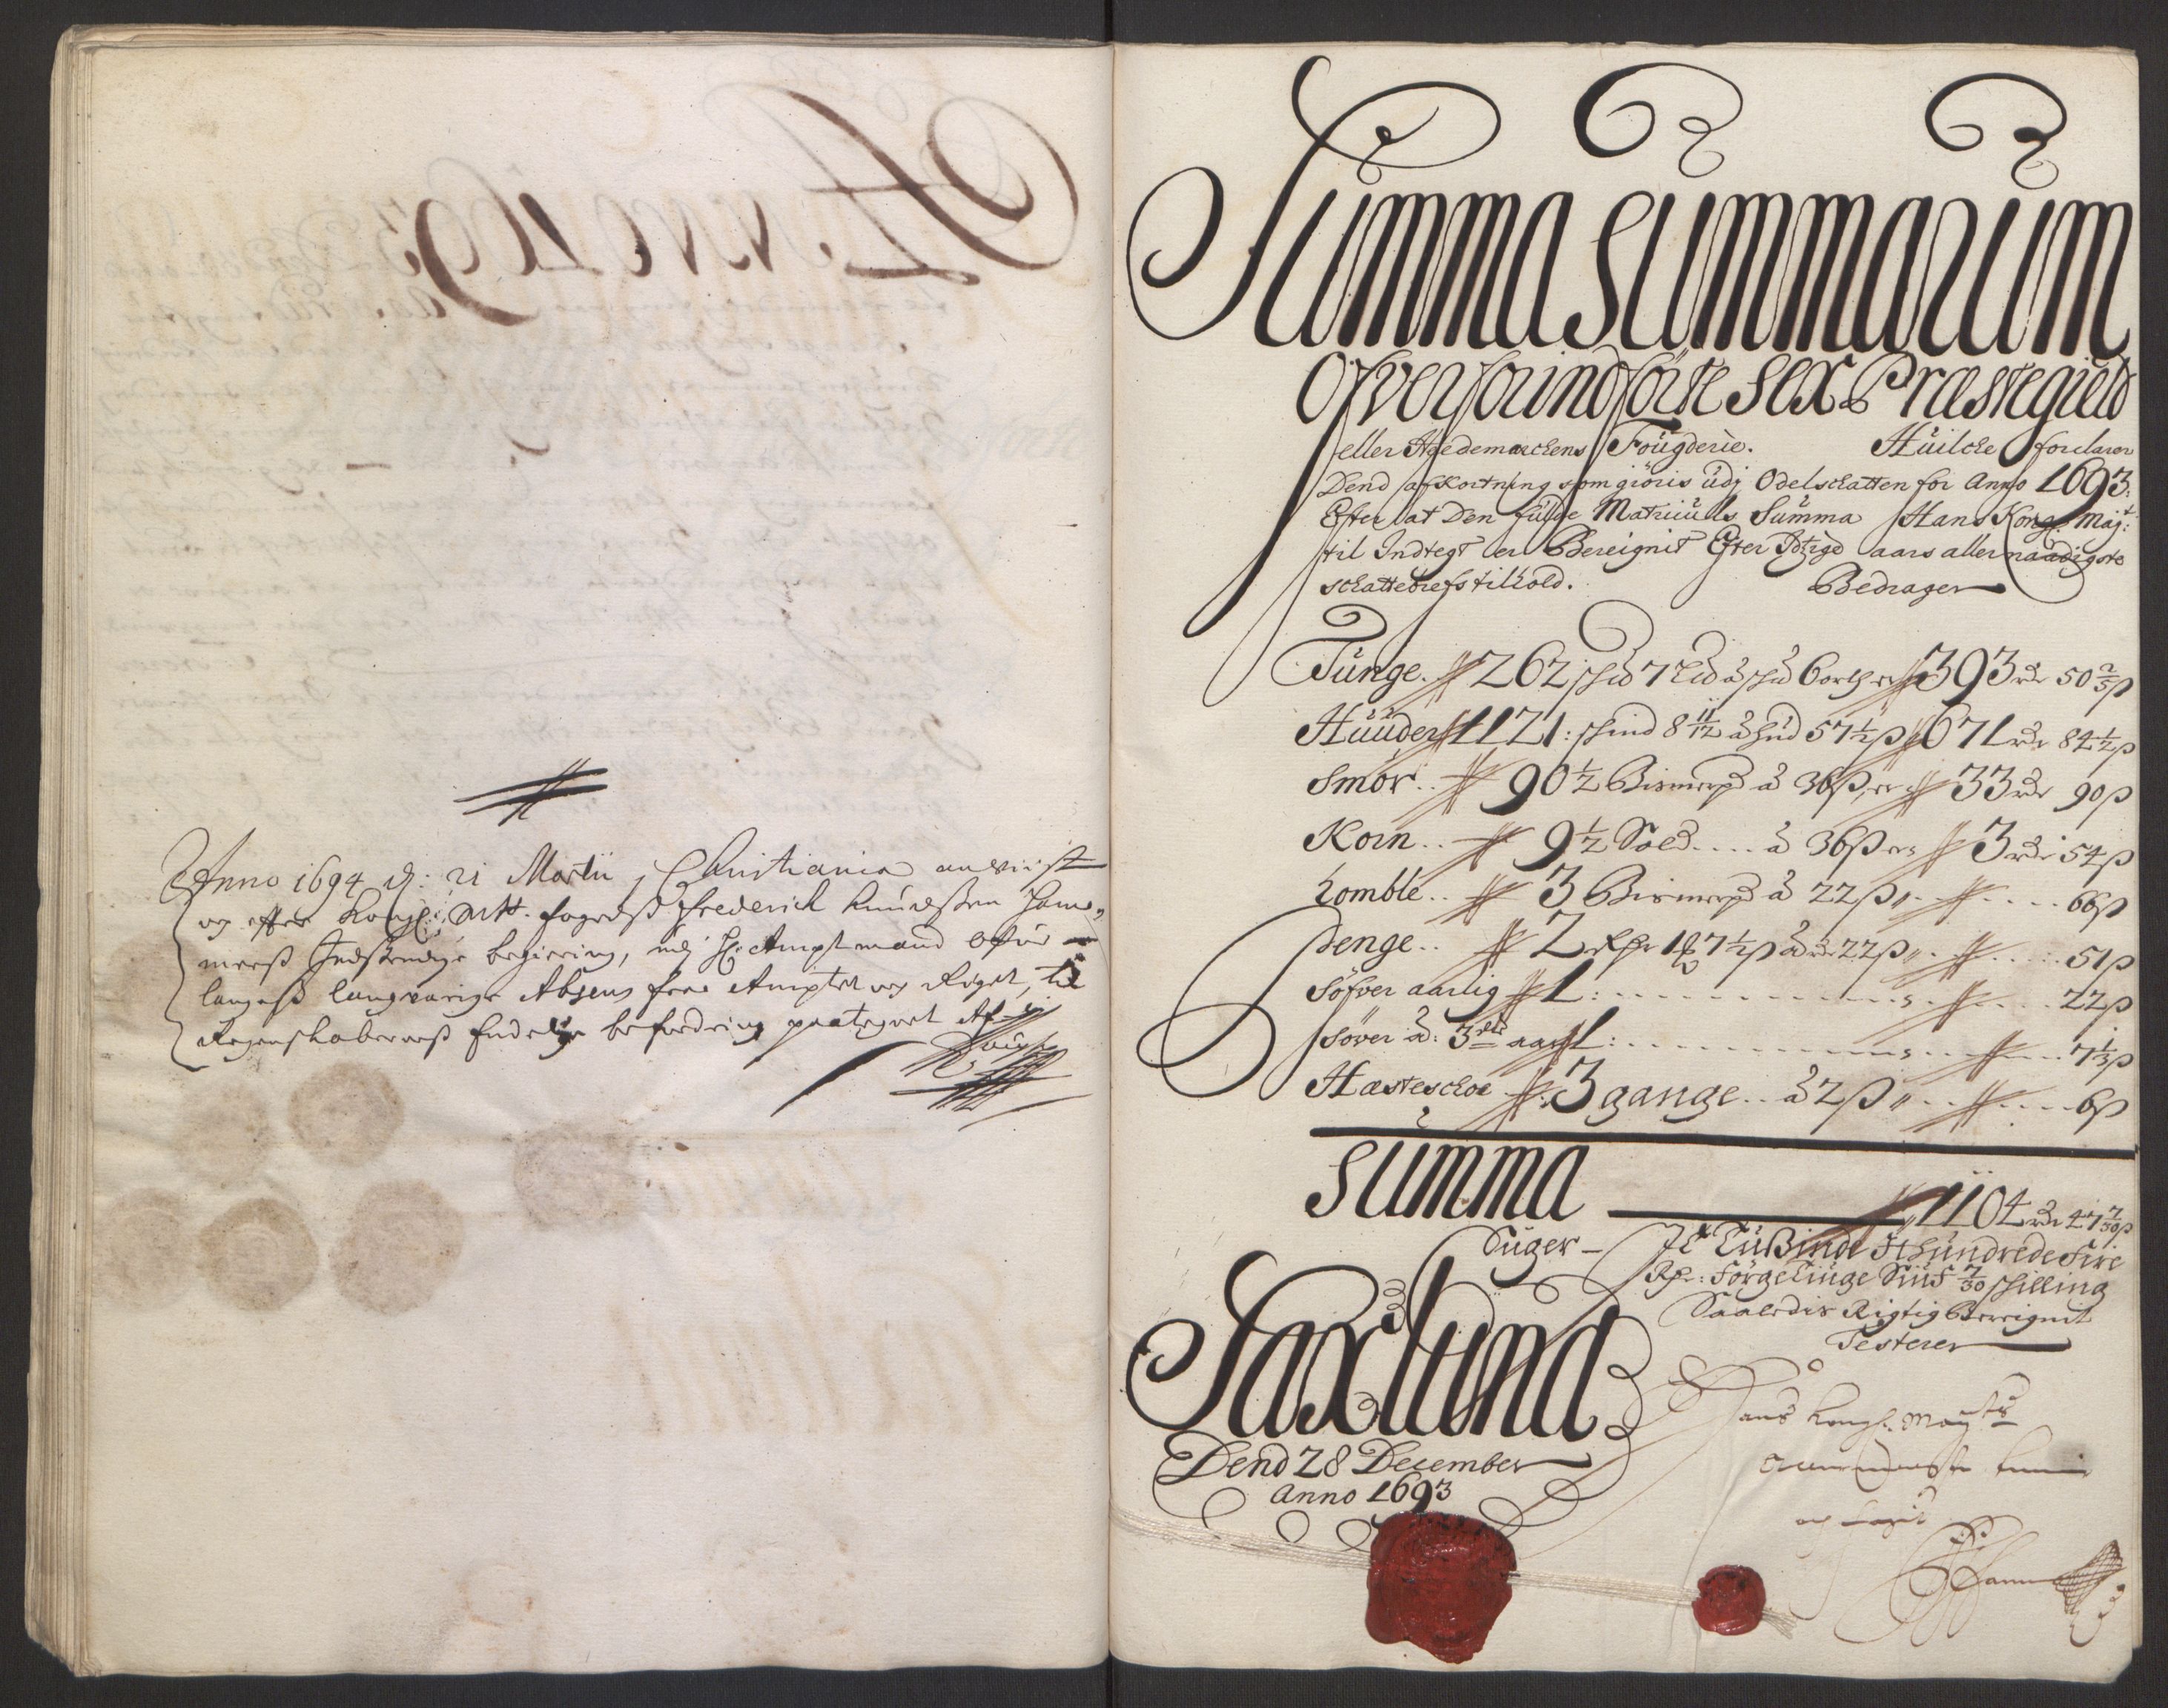 Anno 1694 d: 21 Martii j Christiania anviist
og efter Kongl: Matt. fogedß Frederich Knudßen Ham„
merß Indstendige begiering, udj Hr: Amptmand
langeß langvarige Absens fraa Amptet og Riget, til
Regenskaberneß Endelige befordring paategnet Af
Summa Summarum
Ofverforindførte Sex Præstegield
eller Hedemarckens Fougderie. Huilche forclarer
Dend afkortning som giöris udj Odelschatten for Anno 1693.
Efter at Den fulde Matriculs Summa Hans Kong: Maj:t
til Indtegt er Bereignit Efter aars allernaadigste
schattebrefs tilhold. Bedrager
Tunge. 262 schd 7 Lid a schd 6 orth er 393 rdr 50 2/5 ß
Huuder 1121: schind 8 11/12 a hud 57 1/2 ß 671 rdr 84 1/2 ß
Smör.. 90 1/2 Bismerpd a 36 ß, er 33 rdr 90 ß
Korn.. 9 1/2 Sold.... a 36 ß er 3 rdr 54 ß
homble.. 3 Bismerpd a 22 ß, .... 66 ß
Penge.. 2 Rdr 1 7 1/2 ß a rdr 22 ß„ .... 51 ß
Söfver aarlig 1: .... 22 ß
söver a: 3die aar 1: .... 7 1/3 ß
Hæsteschoe 3 gange.. a 2 ß„ .... 6 ß
Summa 1104 rdr 47 7/30 ß
Siiger – Et Tußinde Et hundrede Fire
Rdr:Förgetiuge Siuf 7/30 schilling
Saaledis Rigtig Bereignit
Testerer
Saxlund
Dend 28 December
Anno 1693
Hans Kongl. Maytts
og fogid